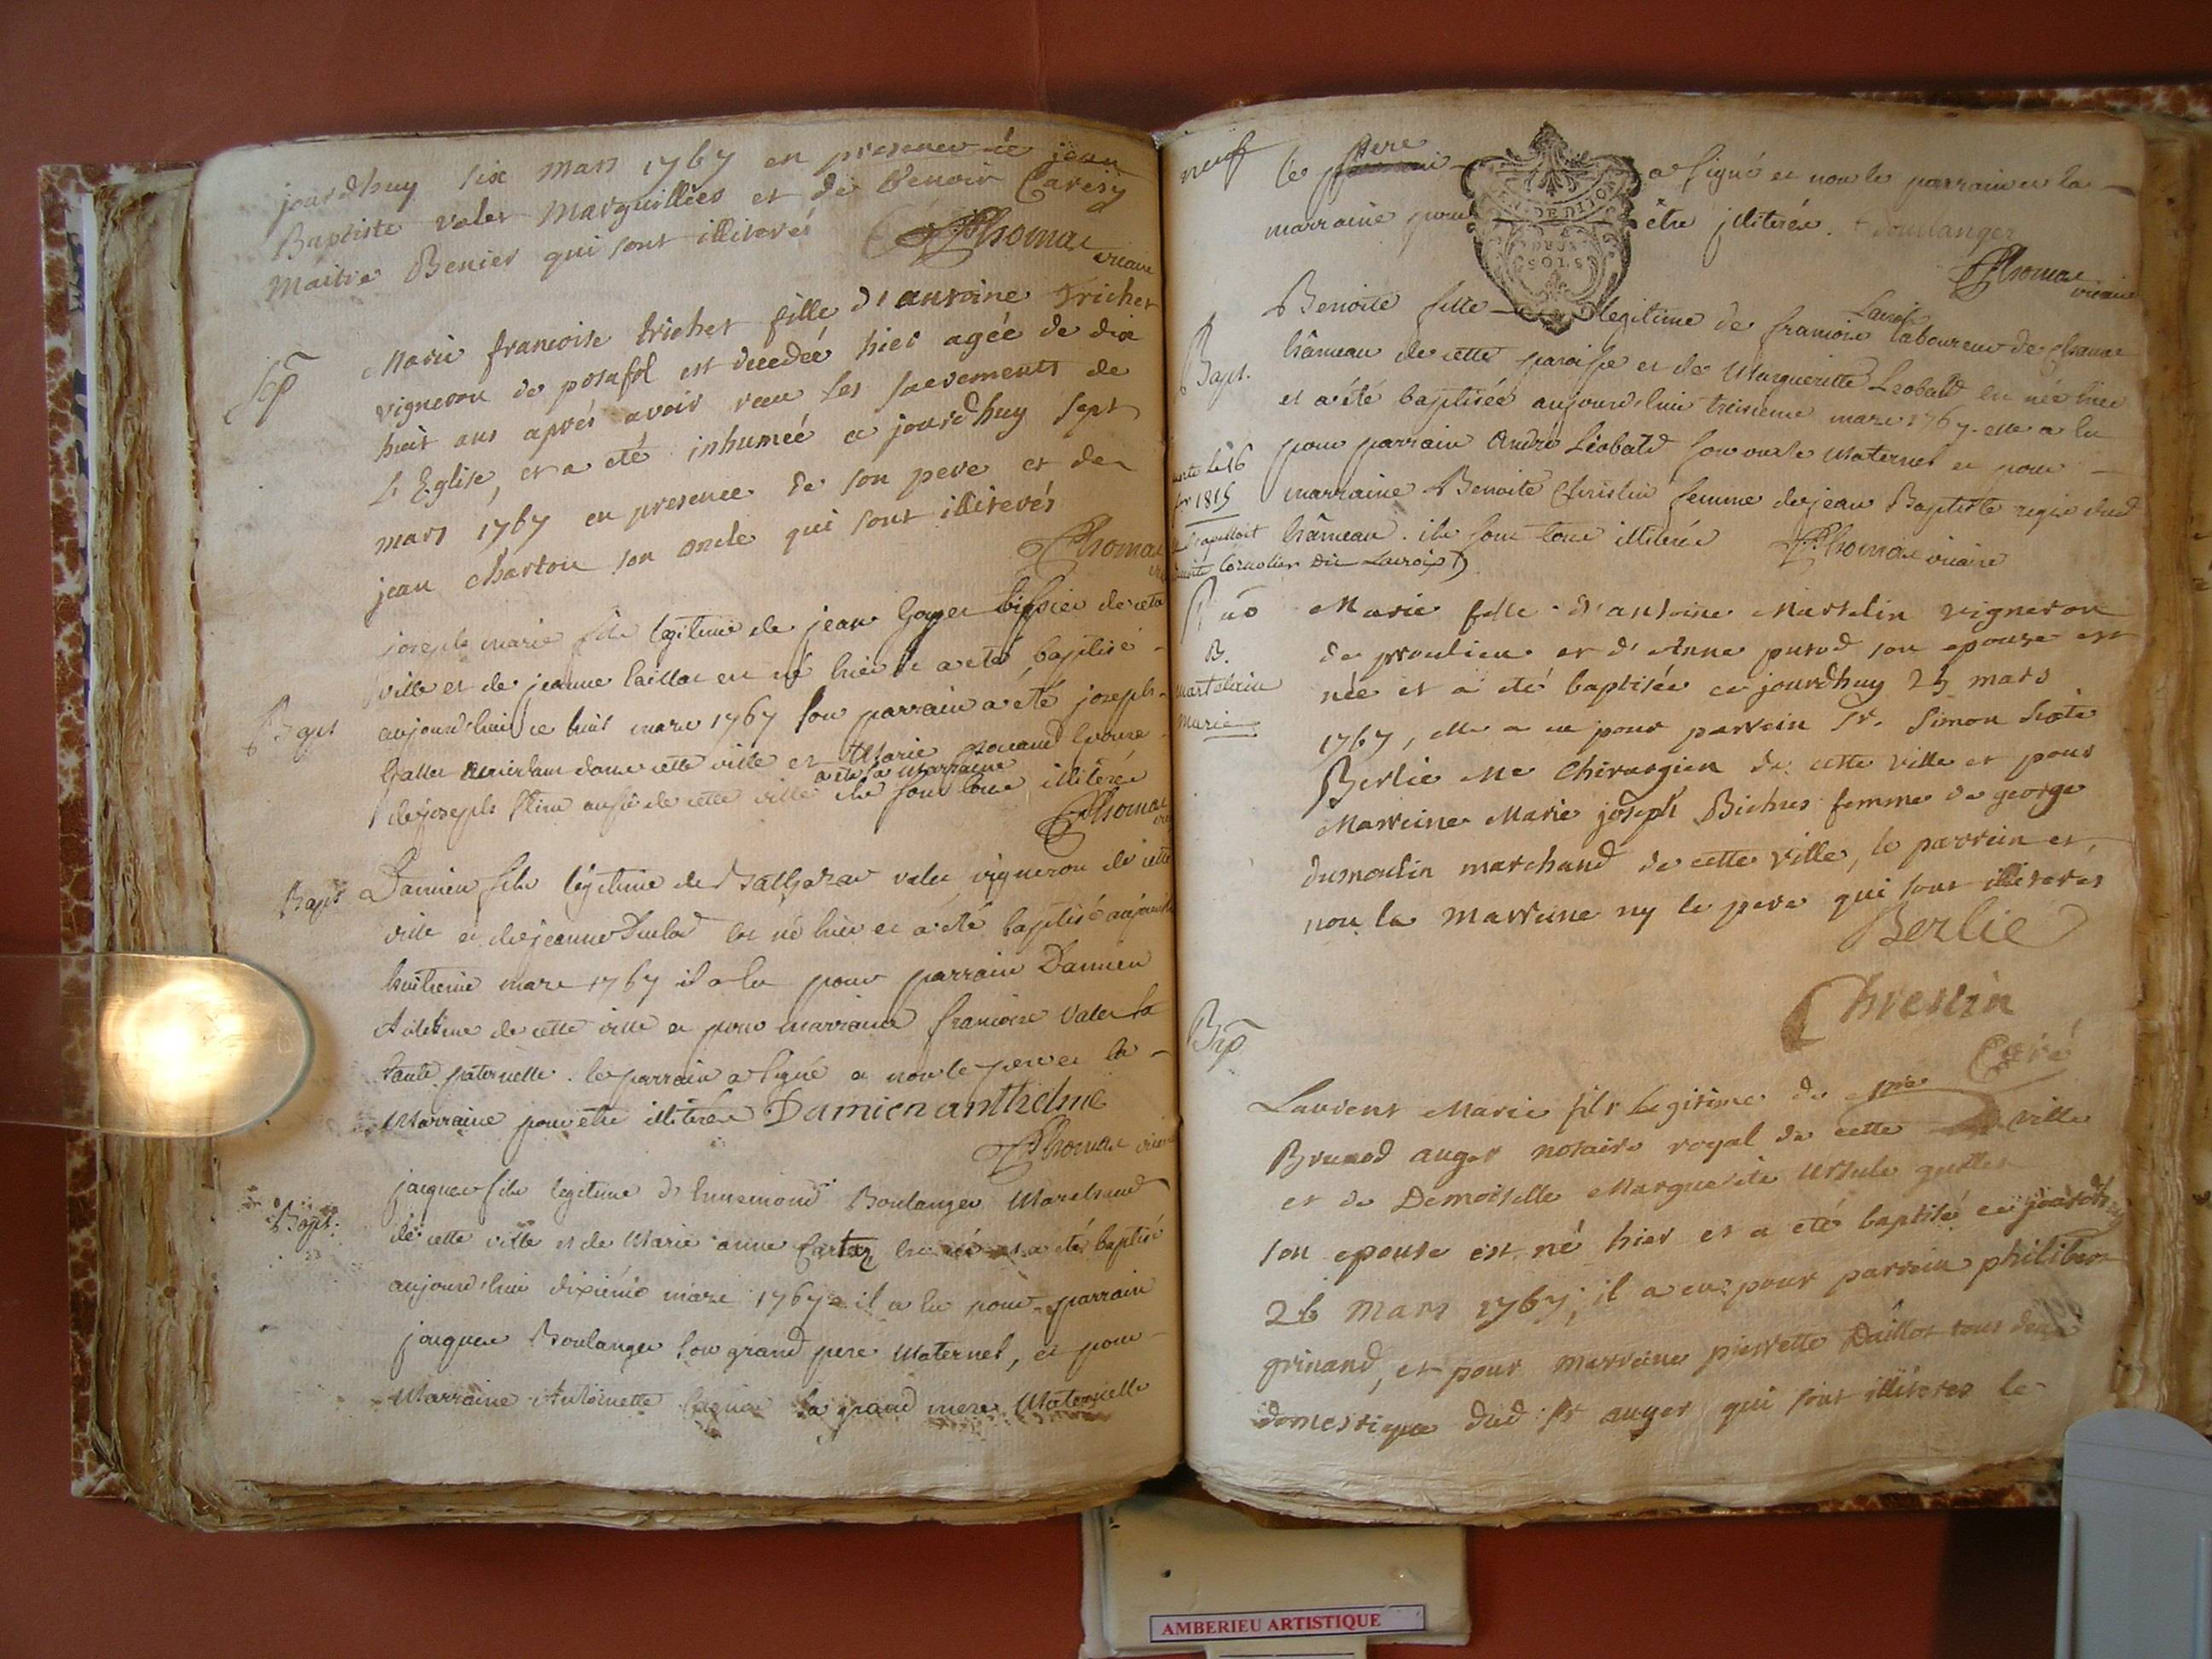 jourdhuy six mars 1767 en presence de jean
Baptiste valet Marguillier et de Benoit
Maitre Benier qui sont illiterés Thomas
vicaire
Sep
Marie francoise trichet fille d'antoine trichet
vigneron de posafol est decedeé hier agée de dix
huit ans aprés avoir recu les sacrements de
L'Eglise, et a eté inhumeé ce jourdhuy sept
mars 1767 en presence de son pere et de
jean charton son oncle qui sont illiterés
Thomas
Bapt
joseph marie fils legitime de jean de cette
ville et de jeanne est né hier et a eté baptisé
aujourdhui ce huit mars 1767 son parrain a été joseph
dans cette ville et Marie
a été sa Marraine
de joseph aussi de cette ville ils sont tous illiterés
Thomas
Bapt
Damien fils légitime de Baltazar valet vigneron de cette
ville et de jeanne est né hier et a été baptisé aujourdhui
huitieme mars 1767 il a eu pour parrain Damien
Antelme de cette ville et pour marraine francoise Valet sa
tante paternelle. le parrain a signé et non le pere et la
Marraine pour etre illiterés Damien anthelme
Thomas
Bapt.
jacques fils legitime d'Ennemond Boulanger Marchand
de cette ville et de Marie anne Cartaz est né et a eté baptisé
aujourdhui dixiéme mars 1767 il a eu pour parrain
jacques Boulanger son grand pere Maternel, et pour
Marraine Antoinette sa grand mere Maternelle
neuf
le pere a signé et non le parrain et la
marraine pour être illiterés. Boulanger
Thomas
vicaire
DE DIJON
DEUX
SOLS
Bapt.
Lavoix
Benoite fille legitime de francois laboureur de
hâmeau de cette paroisse et de Marguerite Leobald est née hier
et a été baptisée aujourdhui treisieme mars 1767. elle a eu
pour parrain André Léobald son oncle Maternel et pour
marraine Benoite Christin femme de jean Baptiste dud
hâmeau. ils sont tous illiterés Thomas vicaire
le 16
1815
dit Lavoix
B.
martelin
marie
Marie fille d'antoine Martelin vigneron
de proulieu et d'Anne purod son epouse est
née et a eté baptisée ce jourdhuy 25 mars
1767, elle a eu pour parrein Sr. Simon
Berlie Me Chirurgien de cette ville et pour
Marreine Marie joseph Bichus femme de george
dumoulin marchand de cette ville, le parrein et
non la marreine ny le pere qui sont illiteres
Berlie
Curé
Bap
Laurent Marie fils legitime de
Brunod auger notaire royal de cette ville
et de Demoiselle Marguerite Ursule
son epouse est né hier et a eté baptisé ce jourdhuy
26 mars 1767, il a eu pour parrein philibert
grinand, et pour marreine pierrette Daillot tous deux
domestique dud Sr auger qui sont illiteres le
AMBERIEU ARTISTIQUE